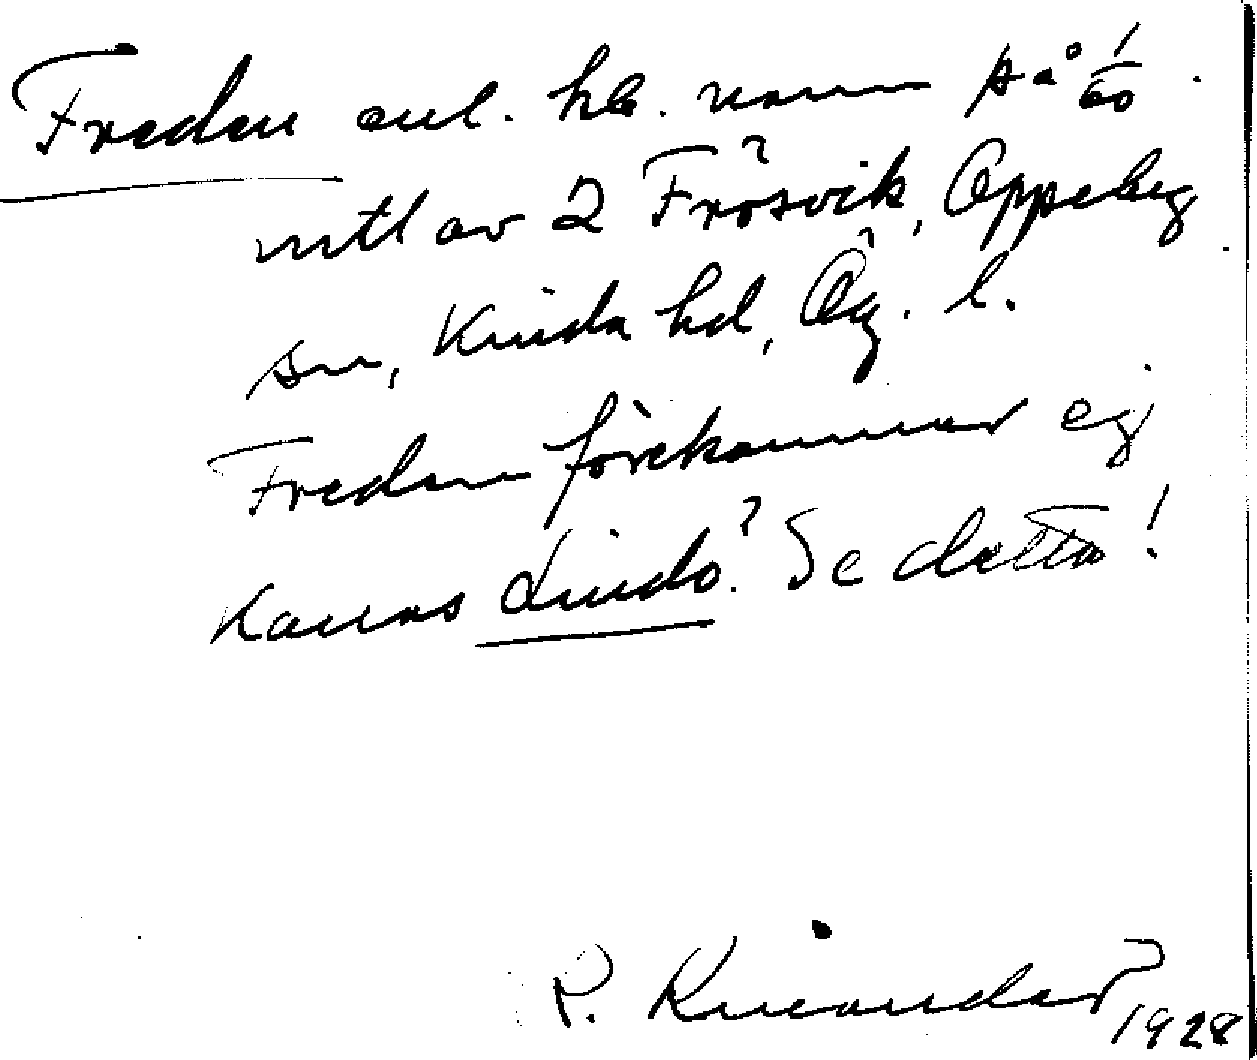 Freden enl. hb. namn på 1/60
mtl av 2 Frösvik, Oppeby
sn, Kinda hd, Ög. l.
Freden förekommer ej
Kanas Lindo? Se detta!
R. Kneander 1928